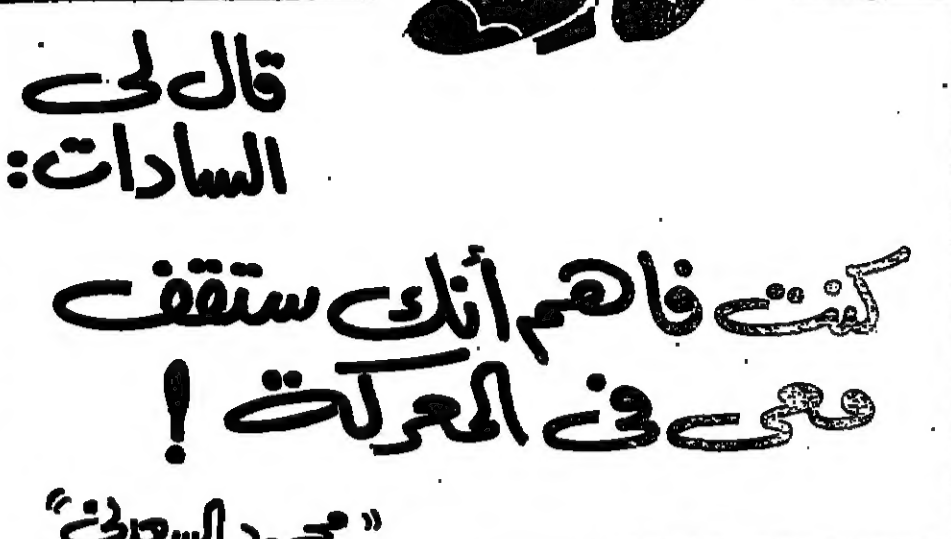 قال لى
السادات:
كنت فاهم أنك ستقف
معى فى المعركة !
"محمود السعدنى"